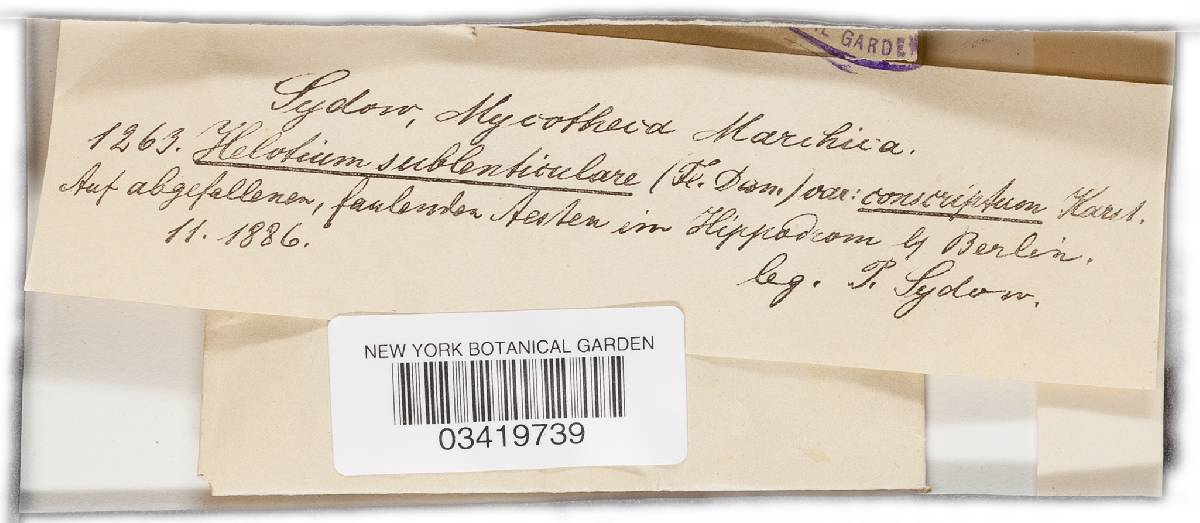 GARDEN
Sydow, Mycotheca Marchica.
1263. Helotium sublenticulare (Fl. Dan.) var: conscriptum Karst.
Auf abgefallenen, faulenden Aesten im Hippodrom b/ Berlin.
11. 1886.
leg. P. Sydow.
NEW YORK BOTANICAL GARDEN
03419739